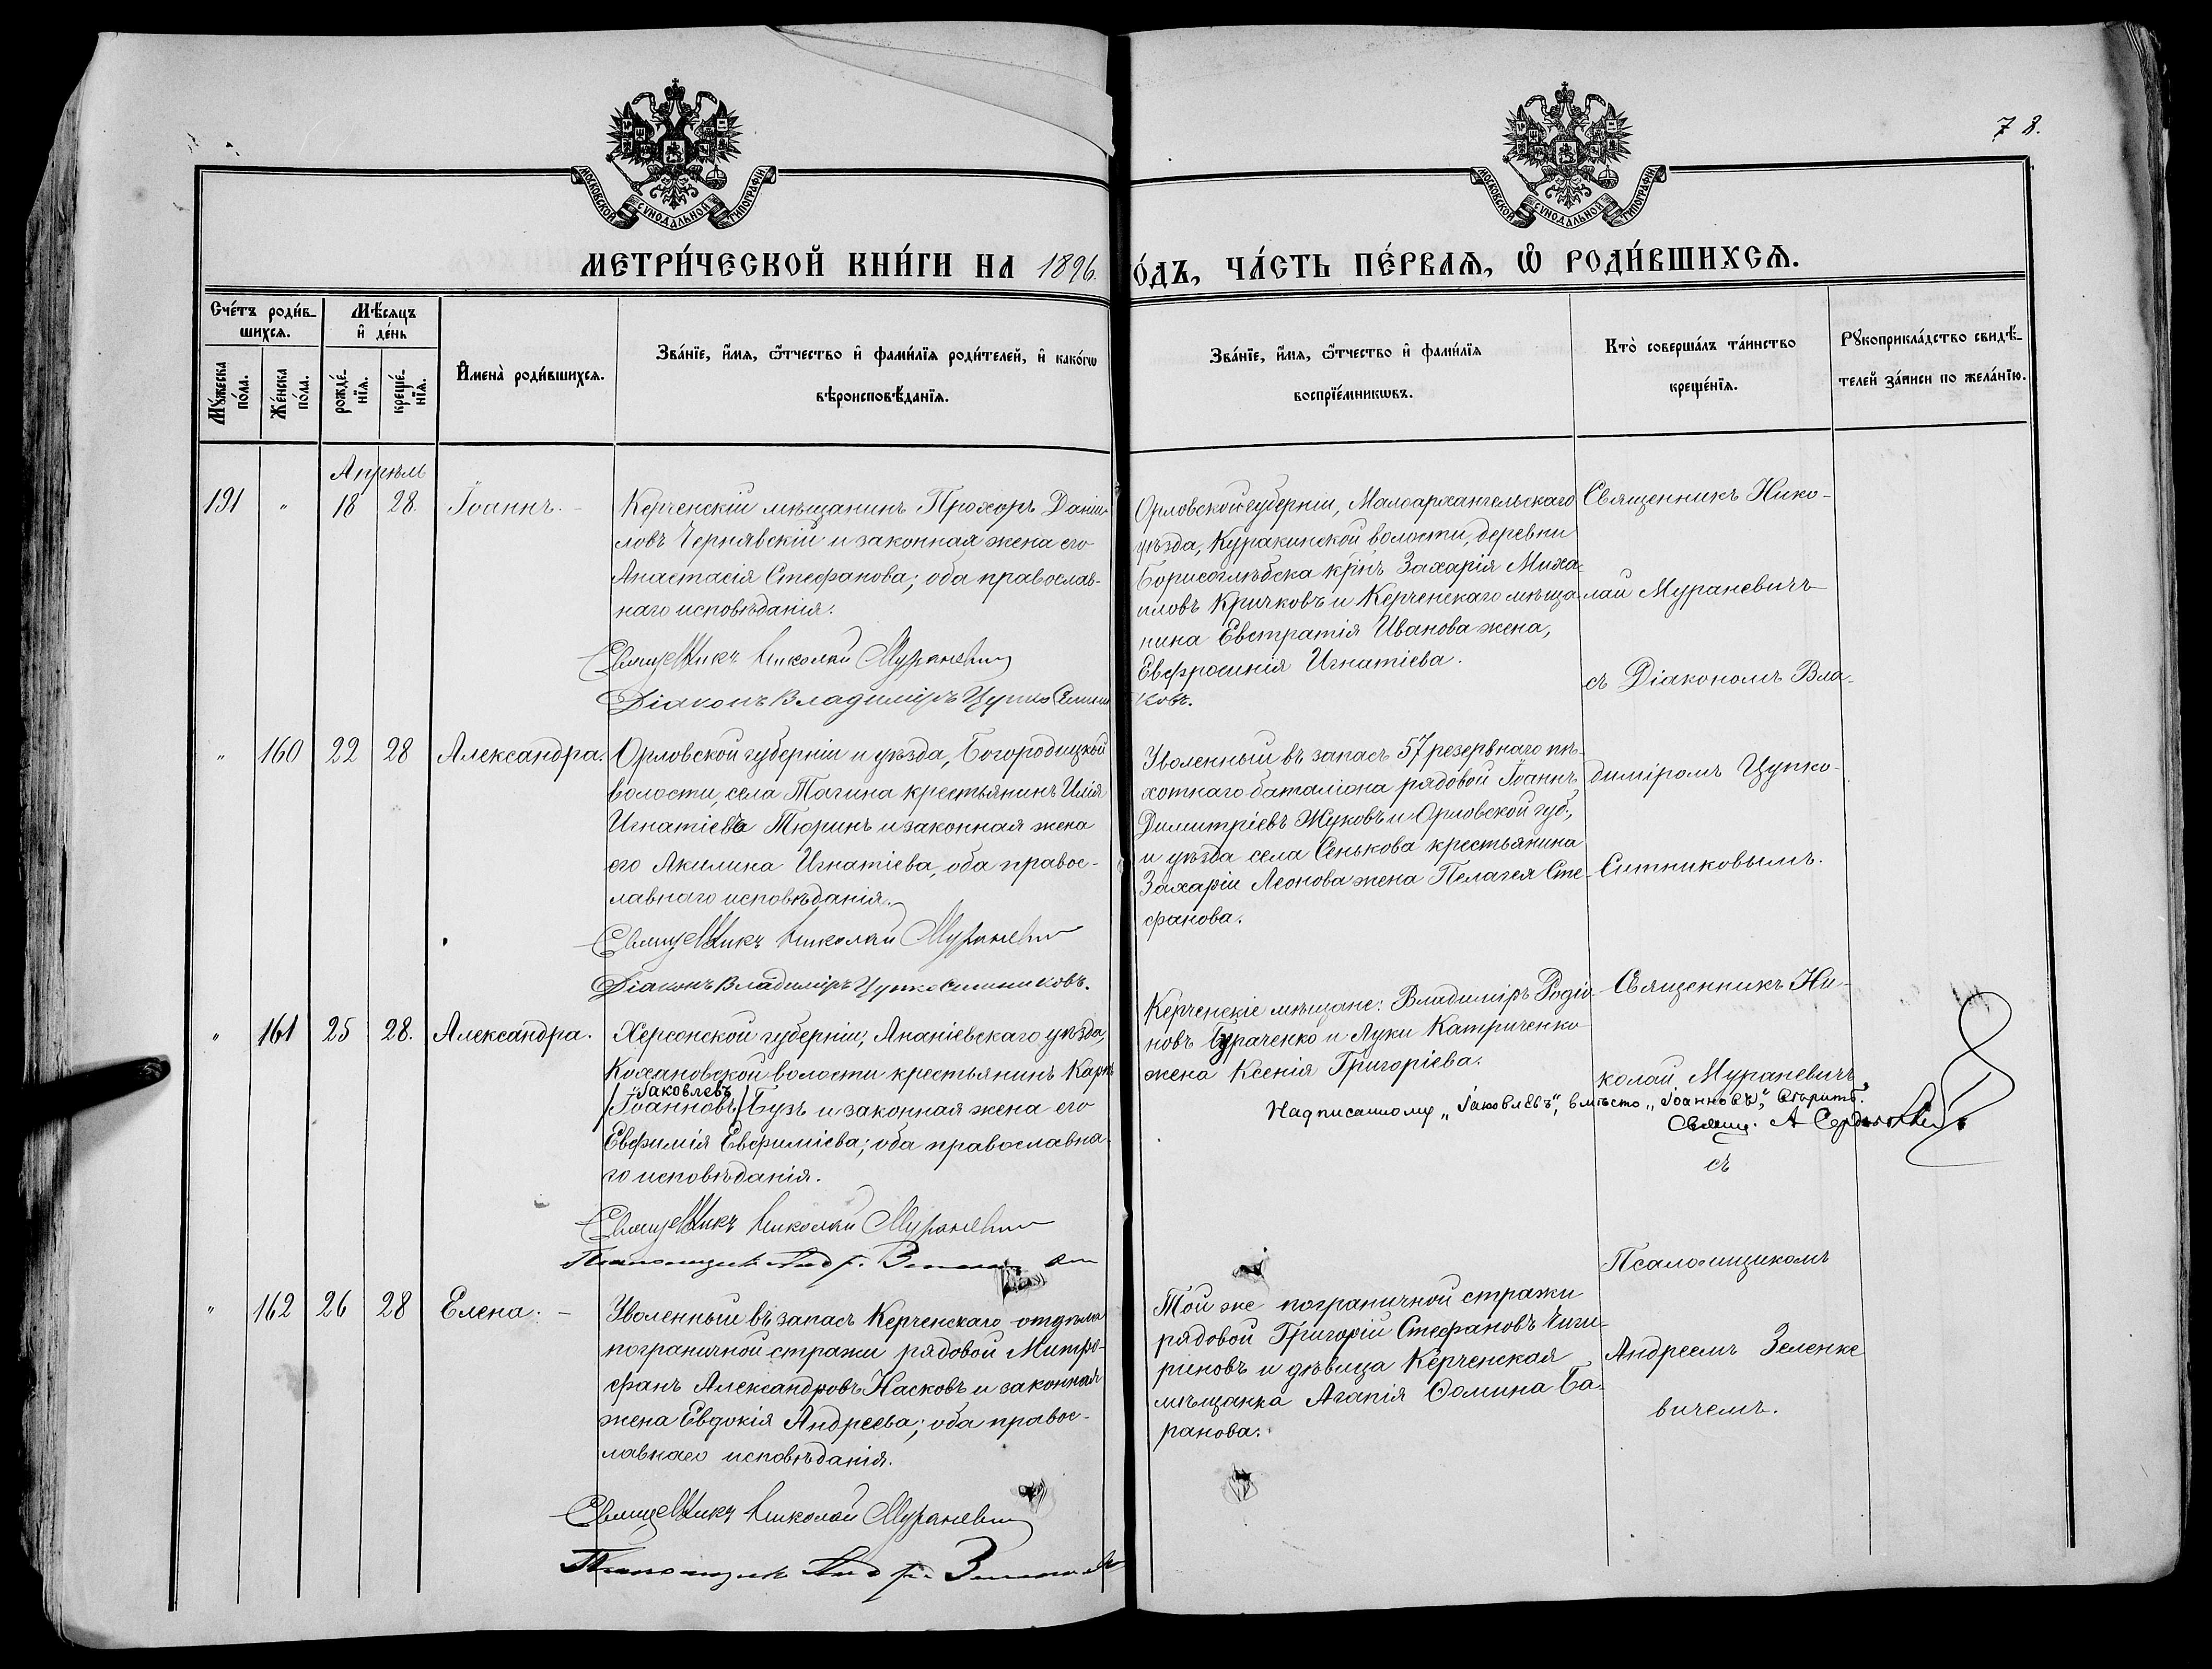 78.
МОСКОВСКОЙ СѴНОДАЛЬНОЙ ТИПОГРАФІИ
МОСКОВСКОЙ СѴНОДАЛЬНОЙ ТИПОГРАФІИ
МЕТРИ́ЧЕСКОЙ КНИ́ГИ НА 1896.
О́ДЪ, ЧА́СТЬ ПЕ́РВАѦ, Ѡ҆ РОДИ́ВШИХСѦ.
Сче́тъ роди́в-
шихсѧ.
Мꙋ́жеска по́ла.
Же́нска по́ла.
Мѣ́сѧцъ
и҆ де́нь
рожде́-
нїѧ.
креще́-
нїѧ.
И҆мена̀ роди́вшихсѧ.
Зва́нїе, и҆́мѧ, ѻ҆́тчество и҆ фами́лїѧ роди́телей, и҆ како́гѡ
вѣроисповѣ́данїѧ.
Зва́нїе, и҆́мѧ, ѻ҆́тчество и҆ фами́лїѧ
воспрїе́мникѡвъ.
Кто̀ соверша́лъ та́инство
креще́нїѧ.
Рꙋкоприкла́дство свидѣ́-
телей за́писи по жела́нїю.
Апрѣль
191 " 18 28. Іоаннъ. -
Керченскій мѣщанинъ Прохоръ Даніи-
ловъ Чернявскій и законная жена его
Анастасія Стефанова; оба православ-
наго исповѣданія.
Священникъ Николай Мураневич
Діаконъ Владиміръ Цупко Ситни
Орловской губерніи, Малоархангельскаго
уѣзда, Куракинской волости, деревни
Борисоглѣбска кр҃нъ Захарія Миха-
иловъ Кричковъ и Керченскаго мѣща-
нина Евстратія Иванова жена,
Евфросинія Игнатіева.
ковъ.
Священникъ Нико-
лай Мураневичъ
съ Діакономъ Вла-
диміромъ Цупко-
Ситниковымъ.
" 160 22 28 Александра.
Орловской губерніи и уѣзда, Богородицкой
волости, села Тагина крестьянинъ Илія
Игнатіевъ Тюринъ и законная жена
его Акилина Игнатіева, оба правос-
лавнаго исповѣданія.
Священникъ Николай Мураневич
Діаконъ Владиміръ Цупко Ситниковъ.
Уволенный въ запасъ 57 резервнаго пѣ-
хотнаго баталіона рядовой Іоаннъ
Димитріевъ Жуковъ и Орловской губ.,
и уѣзда села Сенькова крестьянина
Захаріи Леонова жена Пелагея Сте-
фанова.
" 161 25 28. Александра.
Херсонской губерніи, Ананіевскаго уѣзда,
Кохановской волости крестьянинъ Карпъ
Іаковлевъ
/Іоанновъ/ Бузъ и законная жена его
Евфимія Евфиміева; оба православна-
го исповѣданія.
Священникъ Николай Мураневич
Псаломщикъ Андр.
Керченскіе мѣщане: Владиміръ Родіо-
новъ Бураченко и Луки Катриченко
жена Ксенія Григоріева.
Надписанному „Іаковлевъ“, вмѣсто „Іоанновъ“, вѣрить.
Свящ. А
Священникъ Ни-
колай Мураневичъ
съ
Псаломщикомъ
Андреемъ Зеленке
вичемъ.
" 162 26 28 Елена. -
Уволенный въ запасъ Керченскаго отдѣла
пограничной стражи рядовой Митро-
фанъ Александровъ Насковъ и законная
жена Евдокія Андреева; оба правос-
лавнаго исповѣданія.
Священникъ Николай Мураневич
Псаломщикъ Андр.
Той же пограничной стражи
рядовой Григорій Стефановъ Чиги-
риновъ и дѣвица Керченская
мѣщанка Агапія Ѳомина Ба-
ранова.